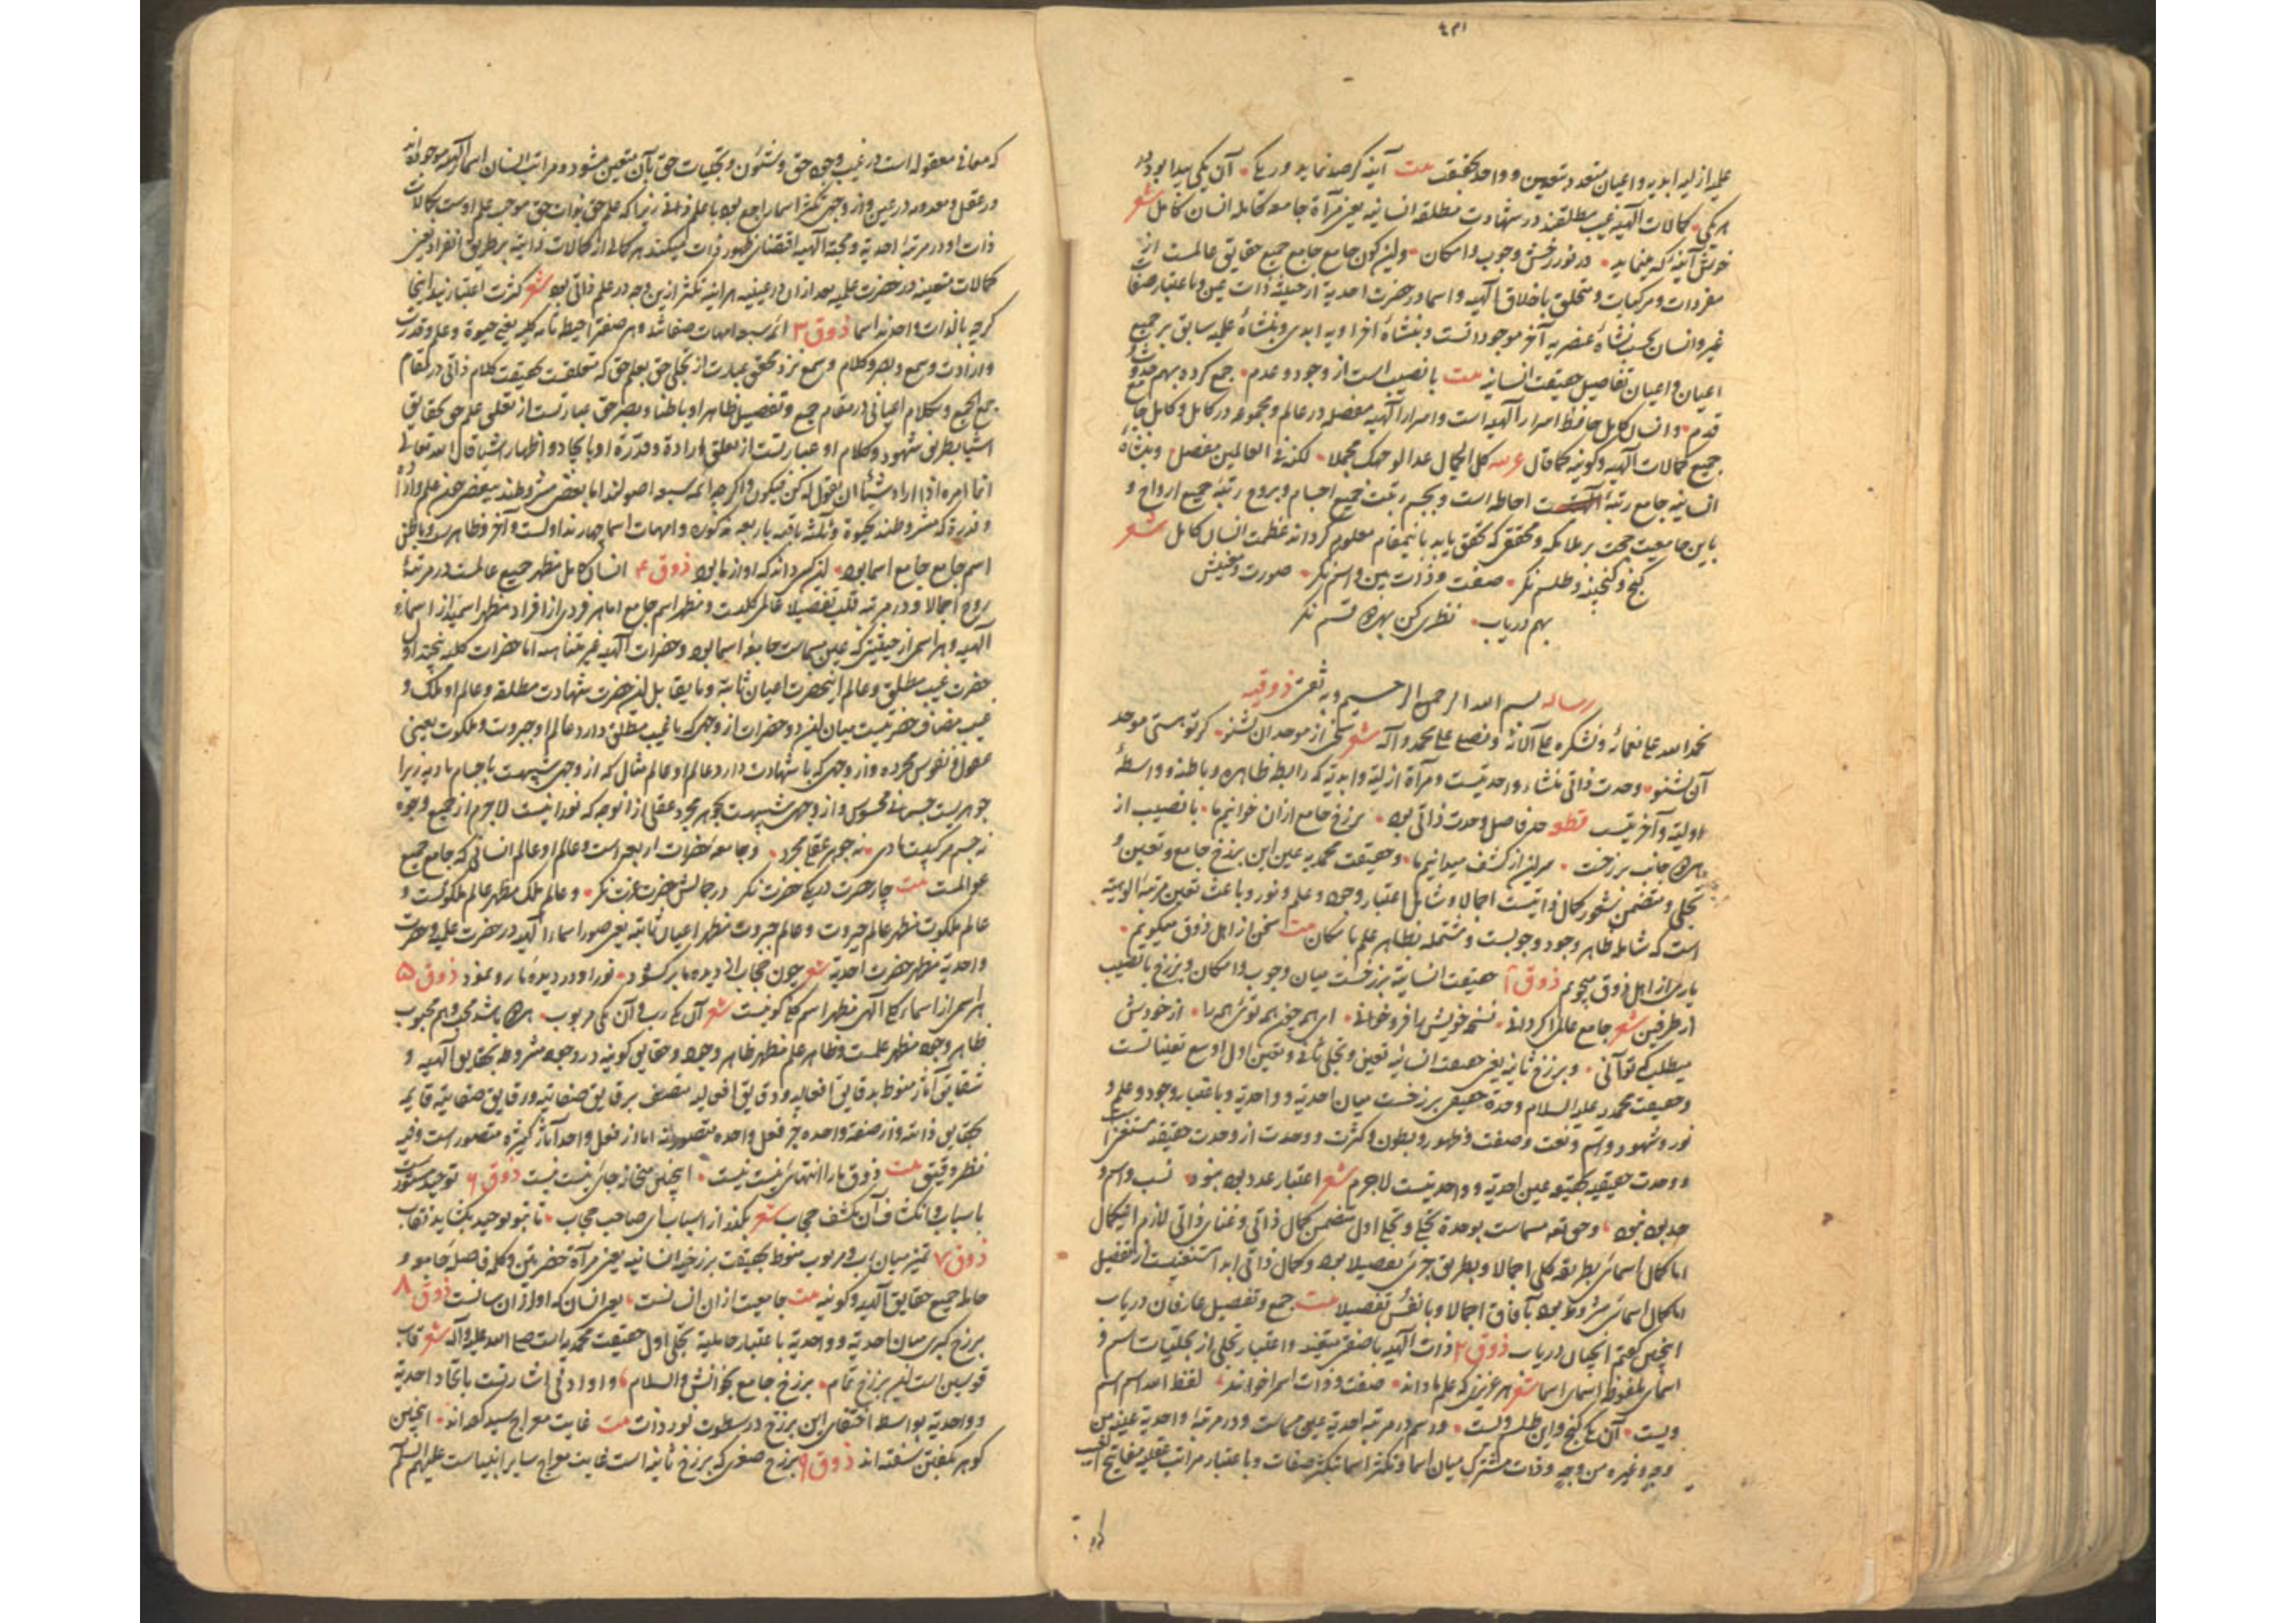 علمیه ازلیه ابدیه و اعیان متعدد متعین و واحد بحقیقت بیت آینه گر صد نماید ور یکی آن یکی پیدا بود در
هر یکی کمالات الهیه غیب مطلقند در شهادت مطلقه انسانیه یعنی مرآة جامعه کامله انسان کامل شعر
خوش آینه که مینماید در نور رخش وجوب و امکان و این کون جامع جامع جمیع حقایق عالمست از
مفردات و مرکبات و متخلق باخلاق الهیه و اسما در حضرت احدیة از حیثیة ذات عین و باعتبار صفات
غیر و انسان بحسب نشأه عنصریه آخر موجود اتست و بنشأه اخراویه ابدی و بنشأه علمیه سابق بر جمیع
اعیان و اعیان تفاصیل حقیقت انسانیه بیت با نصیب است از وجود و عدم جمع کرده بهم حدوث و
قدم و انسان کامل حافظ اسرار الهیه است و اسرار الهیه مفصله در عالم و مجموعه در کامل و کامل جامع
جمیع کمالات الهیه و کونیه کما قال عربیه کل الجمال غدا لوجهک مجملا لکنه فی العالمین مفصل و بنشأه
انسانیه جامع رتبه احاطه است و بجسم رتبت جمیع اجسام و بروح رتبة جمیع ارواح و
باین جامعیت حجت بر ملائکه و محقق که تحقق یابد باینمقام معلوم گرداند عظمت انسان کامل شعر
گنج و گنجینه و طلسم نگر صفت و ذات بین و اسم نگر صورت و معنیش
بهم دریاب نظری کن بهره قسم نگر
رساله بسم الله الرحمن الرحیم وبه ثقتی ذوقیه
نحمد الله علی نعمائه و نشکره علی آلائه و نصلی علی محمد و آله شعر سخنی از موحد ان بشنو گر تو هستی موحد
آن بشنو وحدت ذاتی منشاء واحدیتست و مرآة ازلیة و ابدیة که رابطه ظاهره و باطنه و واسطۀ
اولیة و آخریتست قطعه حد فاصل وحدت ذاتی بود برزخ جامع ازان خوانیم ما با نصیب از
هر دو جانب برزخست سر این از کشف میدانیم ما و حقیقت محمدیه عین این برزخ جامع و تعین و
تجلی و متضمن شعور کمال ذاتیست اجمالا و شامل اعتبار وجود و علم و نور و باعث تعین مرتبۀ الوهیة
است که شامله ظاهر وجود و جوبست و مشتمله بظاهر علم بامکان بیت سخن از اهل ذوق میگویم
یاری از اهل ذوق میجویم ذوق ۱ حقیقت انسانیة برزخست میان وجوب و امکان و برزخ با نصیب
از طرفین شعر جامع عالم اگر دانی نسخه خویش را فرو خوانی ای همه چون همه توئی همه را از خود
میطلب که تو آنی و برزخ ثانیه یعنی حقیقت انسانیه تعین و تجلی ثانی و تعین اول اوسع تعیناتست
و حقیقت محمدیه علیه السلام وحدة حقیقی برزخست میان احدیة و واحدیة و باعتبار وجود و علم و
نور و شهود و اسم و نعت و صفت و ظهور و بطون و کثرت و وحدت از وحدت حقیقه منتشی است
و وحدت حقیقیه بحقیقه عین احدیة و واحدیتست لاجرم شعر اعتبار عدد بود نبود نسب و اسم و
حد بود نبود و حق تعه مسماست بوحدة تجلی و تجلی اول متضمن کمال ذاتی و غنای ذاتی لازم این کمال
اما کمال اسمائی بطریقه کلی اجمالا و بطریق جزئی تفصیلا بود و کمال ذاتی ابدا مستغنیست از تفصیل
اما کمال اسمائی مشروط بود بآفاق اجمالا و بانفس تفصیلا بیت جمع و تفصیل عارفان دریاب
اینچنین گفتم اینچنان دریاب ذوق ۲ ذات الهیه با صفتی معینه و اعتبار تجلی از تجلیات اسم و
اسمای ملفوظه اسمای اسما شعر هر عزیزی که علم ما داند صفت و ذات اسم را خواند لفظ الله اسم اسم
ویست آن یکی گنج و این طلسم ویست و اسم در مرتبه احدیة عین مسماست و در مرتبۀ واحدیة عینه من
وجه و غیره من وجه و ذات مشترک میان اسما و تکثر اسما بتکثر صفات و باعتبار مراتب غیبیه مفاتیح الغیب
که معانی معقوله است در غیب وجود حق و شئون و تجلیات حق بآن متعین میشود و مراتب انسان اسما الهیه موجوده اند
در عقل و معدومه در عین و از وجهی تکثر اسما راجع بود با علم ذاتی زیرا که علم حق بذات حق موجب علم اوست بکمالات
ذات او در مرتبۀ احدیة و محبة الهیه اقتضای ظهور ذات میکند هر کمالی از کمالات ذاتیه بر طریق انفراد یعنی
کمالات متعینه در حضرت علمیه بعد ازان در عینیه هر آینه تکثر ازین وجه در علم ذاتی بود شعر کثرت اعتبار نبد اینجا
گرچه بالذات واحدند اسما ذوق ۳ ائمه سبعه امهات صفاتند و هر صفتی را حیطه تامه کلیه یعنی حیوة و علم و قدرت
و ارادت و سمع و بصر و کلام و سمع نزد محقق عبارت از تجلی حق بعلم حق که متعلقست بحقیقت کلام ذاتی در مقام
جمع الجمع و بکلام اعیانی در مقام جمع و تفصیل ظاهرا و باطنا و بصر حق عبارتست از تعلق علم حق بحقایق
اشیا بطریق شهود و کلام او عبارتست از تعلق ارادة و قدرة او بایجاد و اظهار اشیا قال الله تعالی
انما امره اذا اراد شیئا ان یقول له کن فیکون و اگرچه ائمه سبعه اصولند اما بعضی مشروطند ببعض چون علم و ارادة
و قدرة که مشروطند بحیوة و ثلثه باقیه باربعه مذکوره و امهات اسما چهارند اولست و آخر و ظاهرست و باطن
اسم جامع جامع اسما بود این کسی داند که او از ما بود ذوق ۴ انسان کامل مظهر جمیع عالمست در مرتبۀ
روح اجمالا و در مرتبه قلب تفصیلا عالم کلست و مظهر اسم جامع اما هر فردی از افراد مظهر اسمی از اسماء
الهیه و هر اسمی از حیثیتی که عین مسماست جامع اسما بود و حضرات الهیه غیر متناهیه اما حضرات کلیه پنجند اول
حضرت غیب مطلق و عالم اینحضرت اعیان ثابته و ما یقابل این حضرت شهادت مطلقه و عالم او ملک و
غیب مضاف حضرتیست میان این دو حضرات از وجهی که با غیب مطلق دارد عالم او جبروت و ملکوت یعنی
عقول و نفوس مجرده و از وجهی که با شهادت دارد عالم او عالم مثال که از وجهی شبیهست باجسام مادیه زیرا
جوهریست جسمانی محسوس و از وجهی شبیهست بجوهر مجرد عقلی ازانوجه که نورانیست لاجرم از جمیع وجوه
نه جسم مرکبیست مادی نه جوهر عقلی مجرد و جامعه حضرات اربعه است و عالم او عالم انسانی که جامع جمیع
عوالمست بیت چار حضرت در یکی حضرت نگر در جمالش حضرت عزت نگر و عالم ملک مظهر عالم ملکوتست و
عالم ملکوت مظهر عالم جبروت و عالم جبروت مظهر اعیان ثابته یعنی صور اسماء الهیه در حضرت علمیه و حضرت
واحدیة مظهر حضرت احدیة شعر چون حجاب از دیده ما برگشود نور او در دیده ما رو نمود ذوق ۵
هر اسمی از اسماء کلی الهی مظهر اسم کلی کونیست شعر آن یکی رب و آن یکی مربوب هر دو باشد محب و هم محبوب
ظاهر وجود مظهر علمست و ظاهر علم مظهر ظاهر وجود و حقایق کونیه در وجود مشروط بحقایق الهیه و
شقایق آثار منوط بدقایق افعالیه و دقایق افعالیه متصف برقایق صفاتیه و رقایق صفاتیه قایمه
بحقایق ذاتیه و از صفة واحده جز فعل واحده متصور نه اما از فعل واحد آثار کثیره متصور است و فیه
نظر دقیق بیت ذوق ما را انتهائی نیست نیست اینچنین میخانه جائی نیست نیست ذوق ۶ توحید مستورست
باسباب و انکشاف آن بکشف حجاب شعر بگذر از اسباب ای صاحب حجاب تا بتو توحید بگشاید نقاب
ذوق ۷ تمیز میان رب و مربوب منوط بحقیقت برزخیه انسانیه یعنی مرآة حضرتین و کلمه فاصله جامعه و
حامله جمیع حقایق الهیه و کونیه بیت جامعیت ازان انسانست یعنی انسان که او ازان سانست ذوق ۸
برزخ کبری میان احدیة و واحدیة باعتبار حاملیة تجلی اول حقیقت محمدیه است صلی الله علیه و آله شعر قاب
قوسین است این برزخ تمام برزخ جامع بخوانش والسلام و او ادنی اشارتست باتحاد احدیة
و واحدیة بواسطه اختفای این برزخ در سطوت نور ذات بیت غایت معراج سید گفته اند اینچنین
گوهر بگفتن سفته اند ذوق ۹ برزخ صغری که برزخ ثانیه است غایت معراج سایر انبیاست علیهم السلم